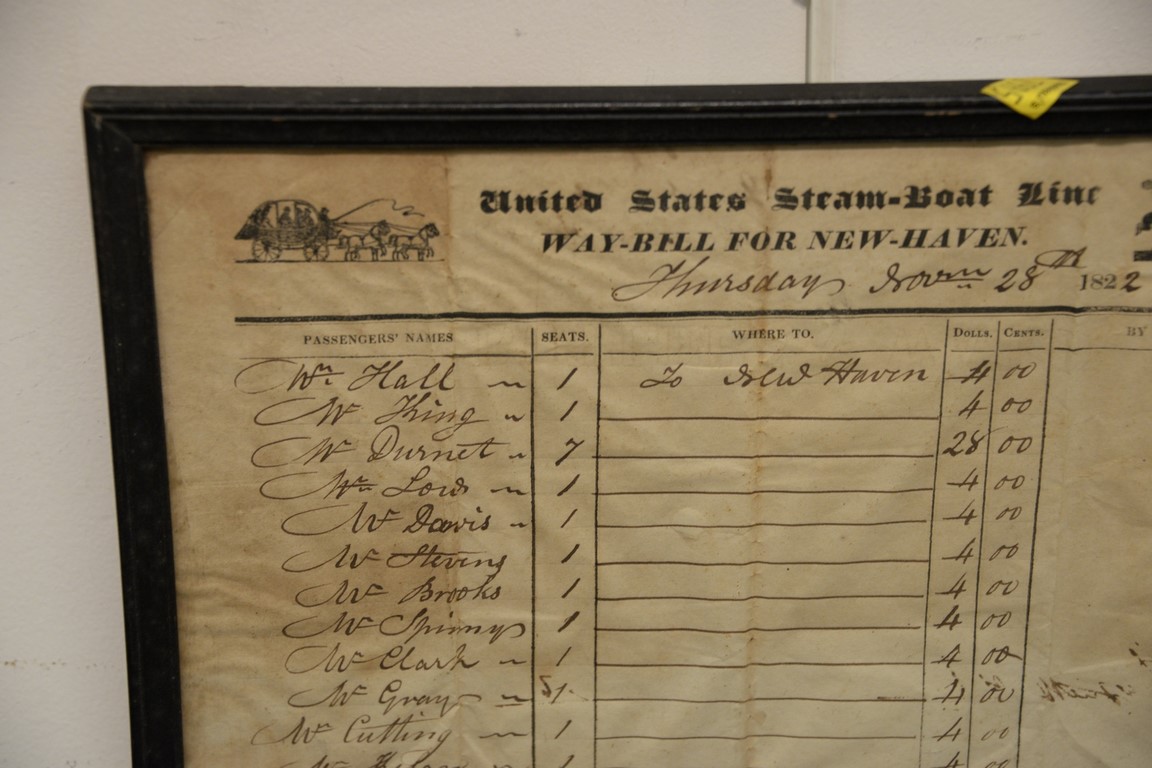 United States Steam-Boat Line
WAY-BILL FOR NEW-HAVEN.
Thursday Novm 28th 1822
PASSENGERS' NAMES SEATS. WHERE TO. DOLLS. CENTS. BY
Wm Hall " 1 To New Haven 4 00
Mr King " 1 4 00
Mr Durnet " 7 28 00
Low " 1 4 00
Mr Davis " 1 4 00
Mr Stevens 1 4 00
Mr Brooks 1 4 00
Mr 1 4 00
Mr Clark " 1 4 00
Mr Gray " 1 4 00
Mr Cutting " 1 4 00
1 4 00